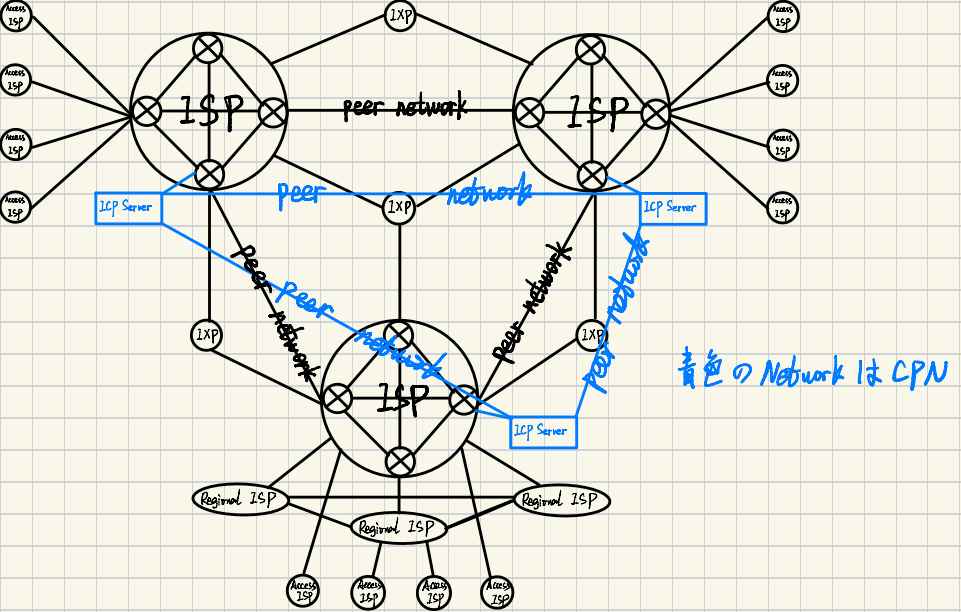 IXP
Access ISP
Access ISP
Access ISP
Access ISP
ISP
peer network
ISP
Access ISP
Access ISP
Access ISP
Access ISP
ICP Server
peer network
IXP
ICP Server
peer network
peer network
peer network
peer network
IXP
IXP
ISP
青色のNetworkはCPN
ICP Server
Regional ISP
Regional ISP
Regional ISP
Access ISP
Access ISP
Access ISP
Access ISP